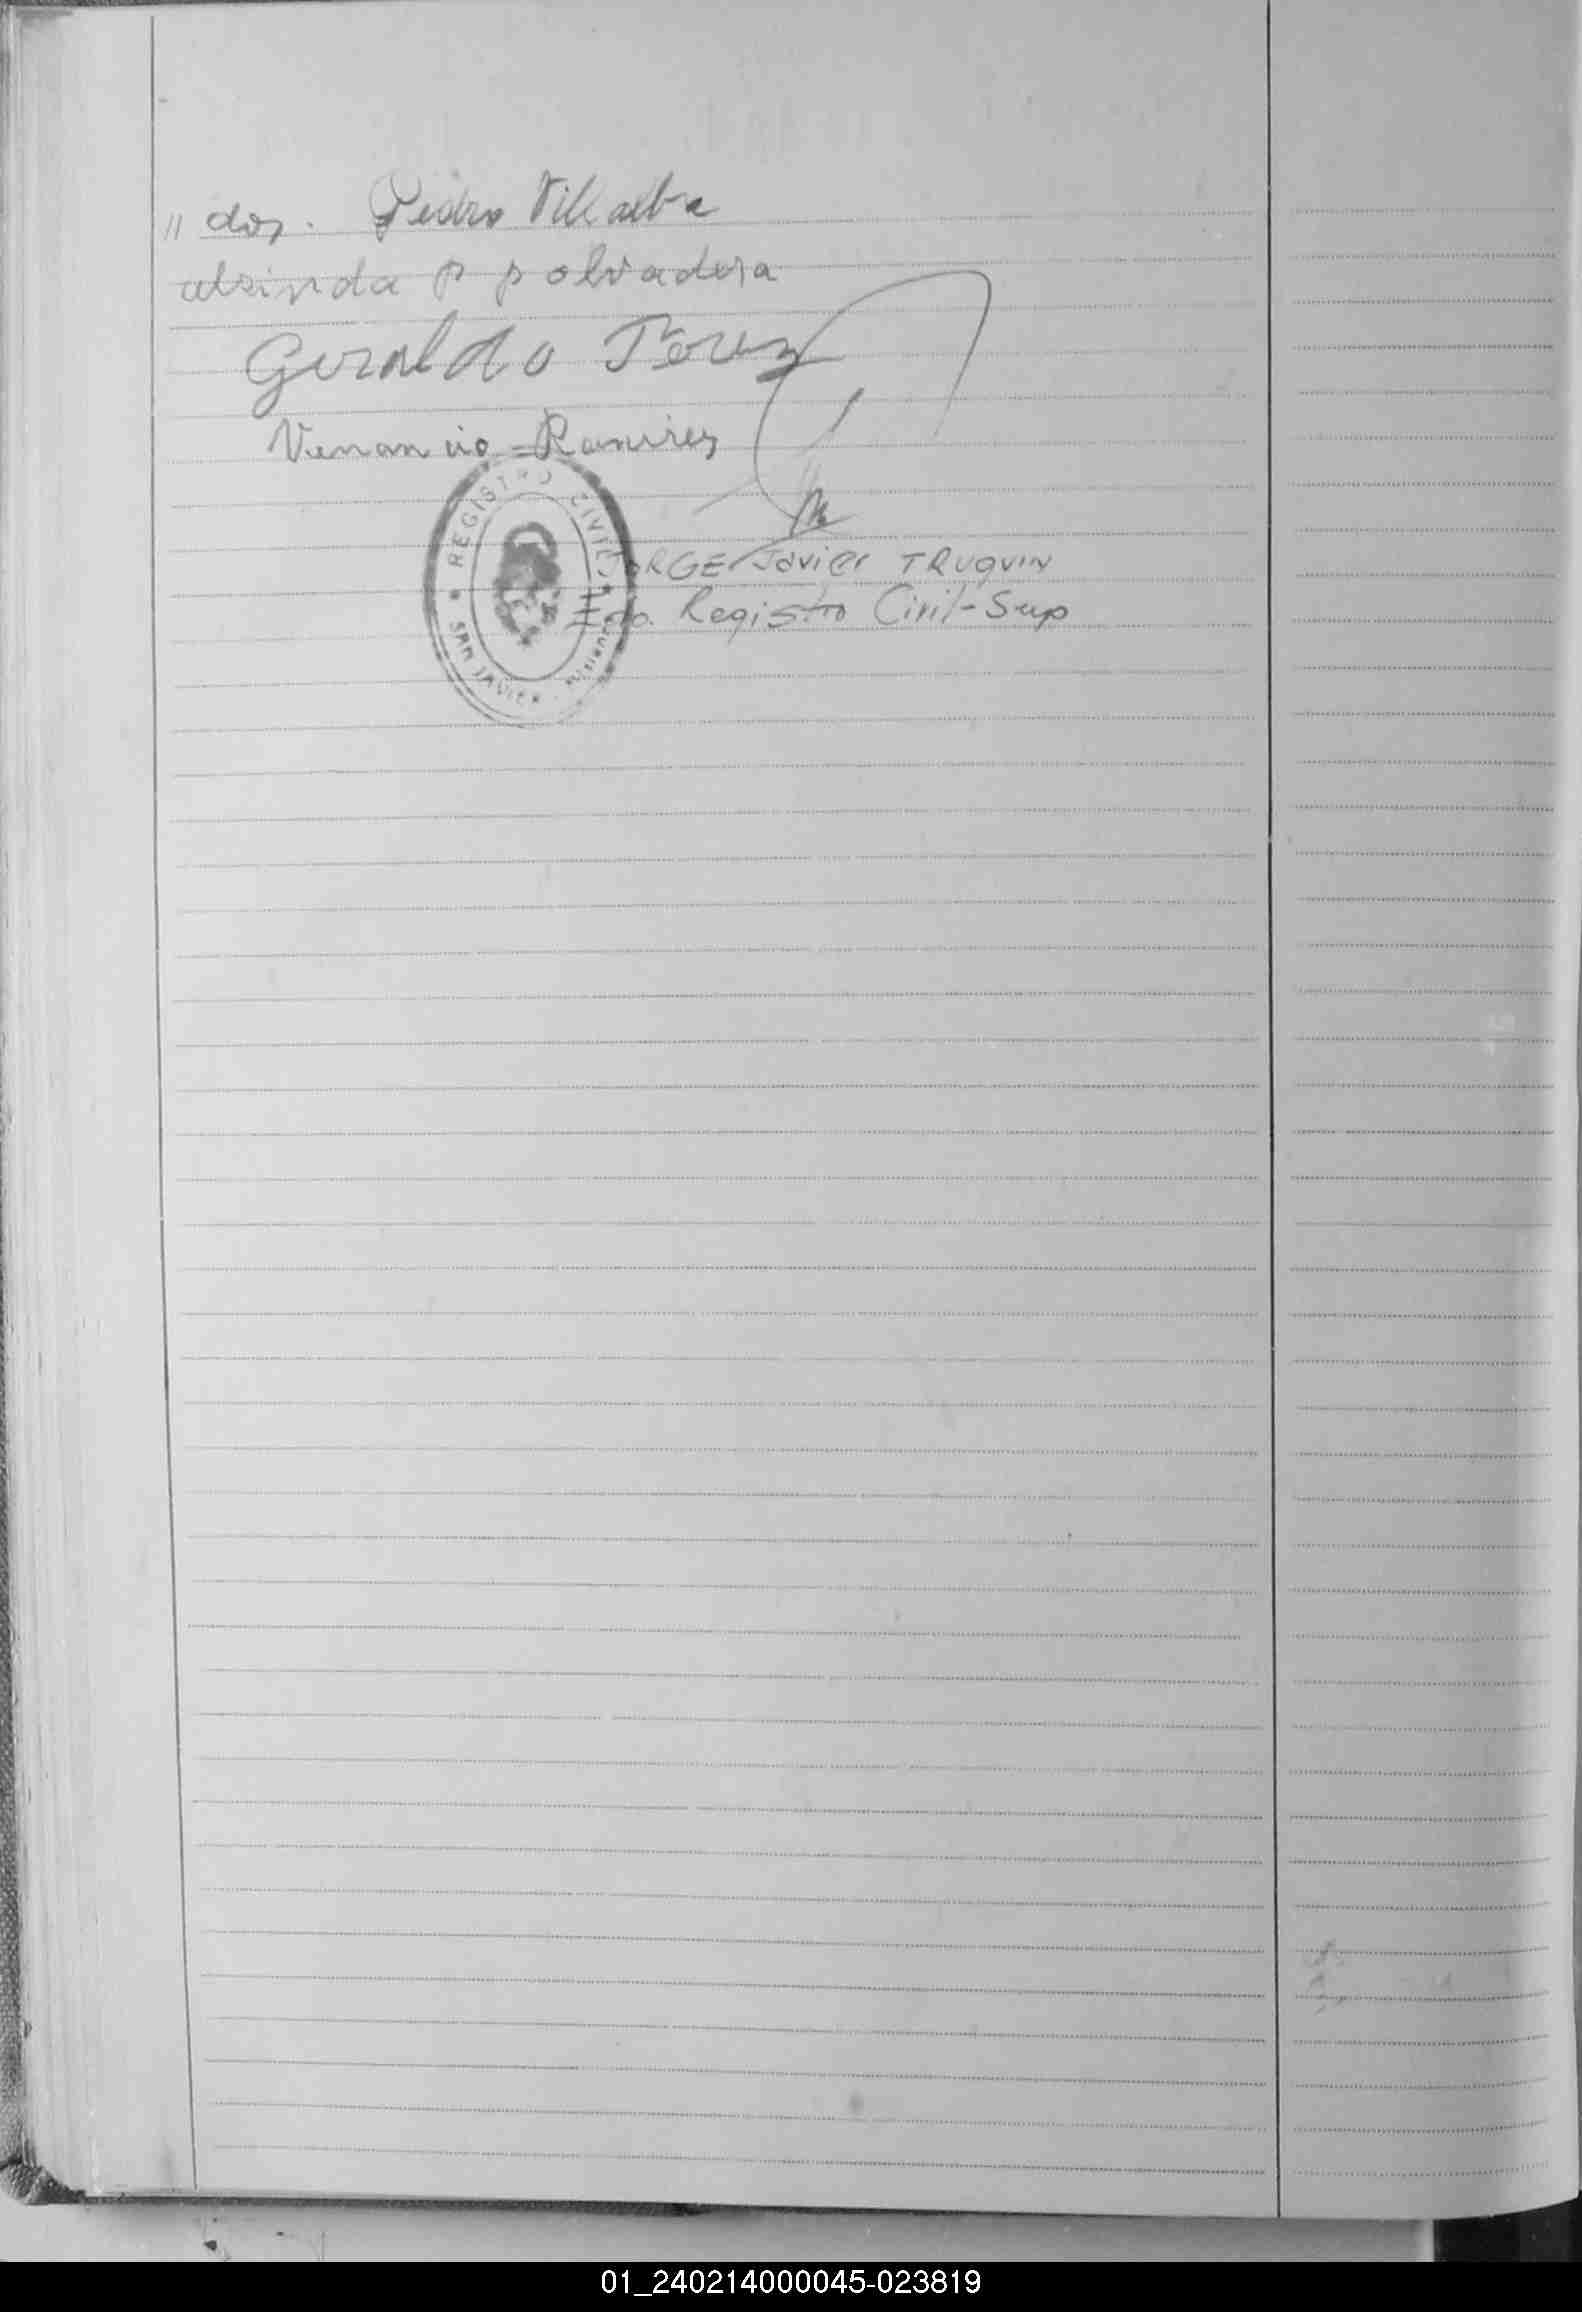 " dos. Pedro Villalba
alsinda P polvadera
Geraldo Perez
Venancio Ramirez
REGISTRO CIVIL
SAN JAVIER - Misiones
JORGE Javier TRUQUIN
Eco. Registro Civil-Sup
01_240214000045-023819